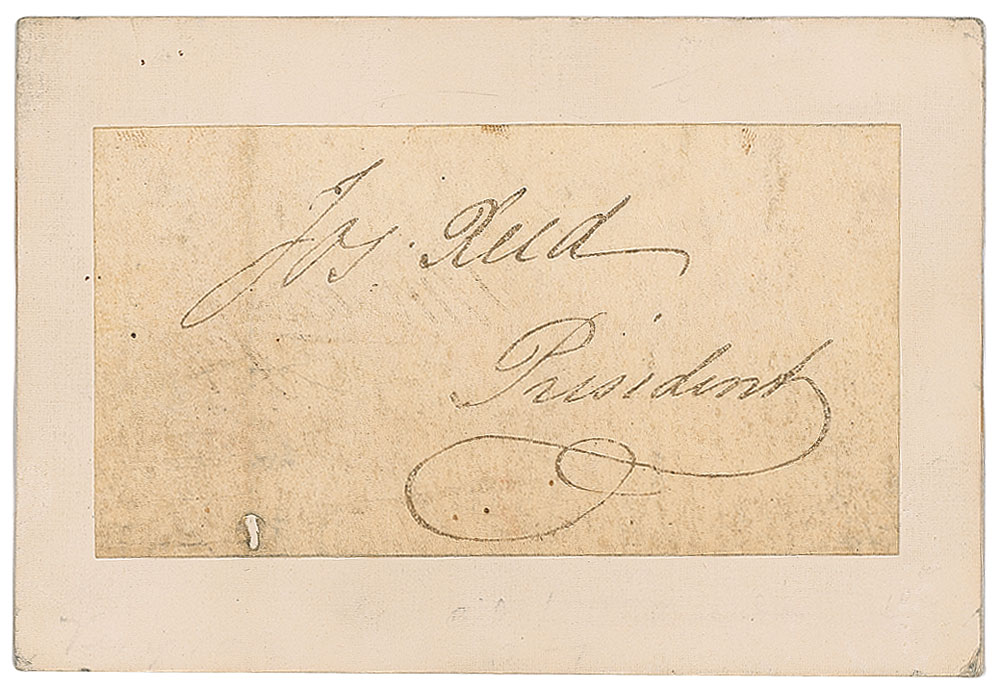 Jos. Reed
President